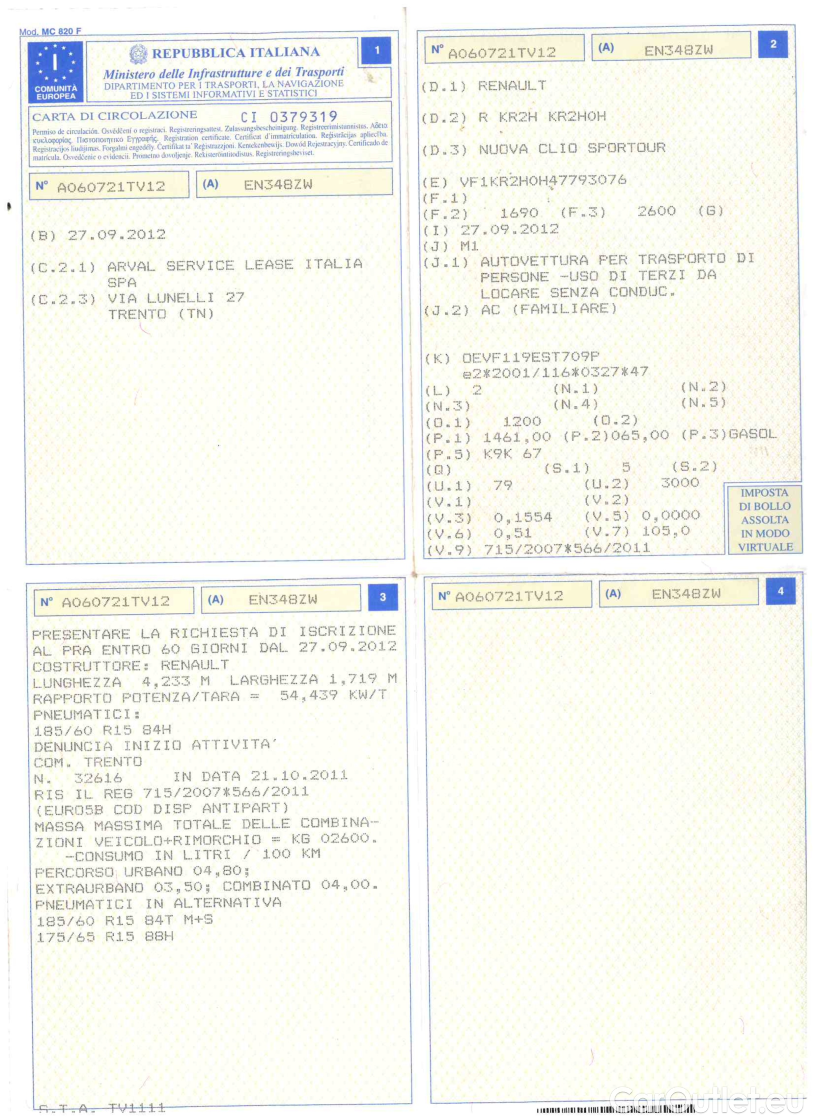 Mod. MC 820 F
I
COMUNITÀ
EUROPEA
REPUBBLICA ITALIANA
1
Ministero delle Infrastrutture e dei Trasporti
DIPARTIMENTO PER I TRASPORTI, LA NAVIGAZIONE
ED I SISTEMI INFORMATIVI E STATISTICI
CARTA DI CIRCOLAZIONE CI 0379319
Permiso de circulación. Osvědčení o registraci. Registreringsattest. Zulassungsbescheinigung. Registreerimistunnistus. Άδεια
κυκλοφορίας. Registration certificate. Certificat d'immatriculation. Reģistrācijas apliecība.
Registracijos liudijimas. Forgalmi engedély. Ċertifikat ta' Reġistrazzjoni. Kentekenbewijs. Dowód Rejestracyjny. Certificado de
matrícula. Osvedčenie o evidencii. Prometno dovoljenje. Rekisteröintitodistus. Registreringsbeviset.
N° A060721TV12 (A) EN348ZW
(B) 27.09.2012
(C.2.1) ARVAL SERVICE LEASE ITALIA
SPA
(C.2.3) VIA LUNELLI 27
TRENTO (TN)
N° A060721TV12 (A) EN348ZW 2
(D.1) RENAULT
(D.2) R KR2H KR2H0H
(D.3) NUOVA CLIO SPORTOUR
(E) VF1KR2H0H47793076
(F.1)
(F.2) 1690 (F.3) 2600 (G)
(I) 27.09.2012
(J) M1
(J.1) AUTOVETTURA PER TRASPORTO DI
PERSONE -USO DI TERZI DA
LOCARE SENZA CONDUC.
(J.2) AC (FAMILIARE)
(K) OEVF119EST709P
e2*2001/116*0327*47
(L) 2 (N.1) (N.2)
(N.3) (N.4) (N.5)
(O.1) 1200 (O.2)
(P.1) 1461,00 (P.2)065,00 (P.3)GASOL
(P.5) K9K 67
(Q) (S.1) 5 (S.2)
(U.1) 79 (U.2) 3000
(V.1) (V.2)
(V.3) 0,1554 (V.5) 0,0000
(V.6) 0,51 (V.7) 105,0
(V.9) 715/2007*566/2011
IMPOSTA
DI BOLLO
ASSOLTA
IN MODO
VIRTUALE
N° A060721TV12 (A) EN348ZW 3
PRESENTARE LA RICHIESTA DI ISCRIZIONE
AL PRA ENTRO 60 GIORNI DAL 27.09.2012
COSTRUTTORE: RENAULT
LUNGHEZZA 4,233 M LARGHEZZA 1,719 M
RAPPORTO POTENZA/TARA = 54,439 KW/T
PNEUMATICI:
185/60 R15 84H
DENUNCIA INIZIO ATTIVITA'
COM. TRENTO
N. 32616 IN DATA 21.10.2011
RIS IL REG 715/2007*566/2011
(EURO5B COD DISP ANTIPART)
MASSA MASSIMA TOTALE DELLE COMBINA-
ZIONI VEICOLO+RIMORCHIO = KG 02600.
-CONSUMO IN LITRI / 100 KM
PERCORSO URBANO 04,80;
EXTRAURBANO 03,50; COMBINATO 04,00.
PNEUMATICI IN ALTERNATIVA
185/60 R15 84T M+S
175/65 R15 88H
S.T.A. TV1111
N° A060721TV12 (A) EN348ZW 4
CarOutlet.eu